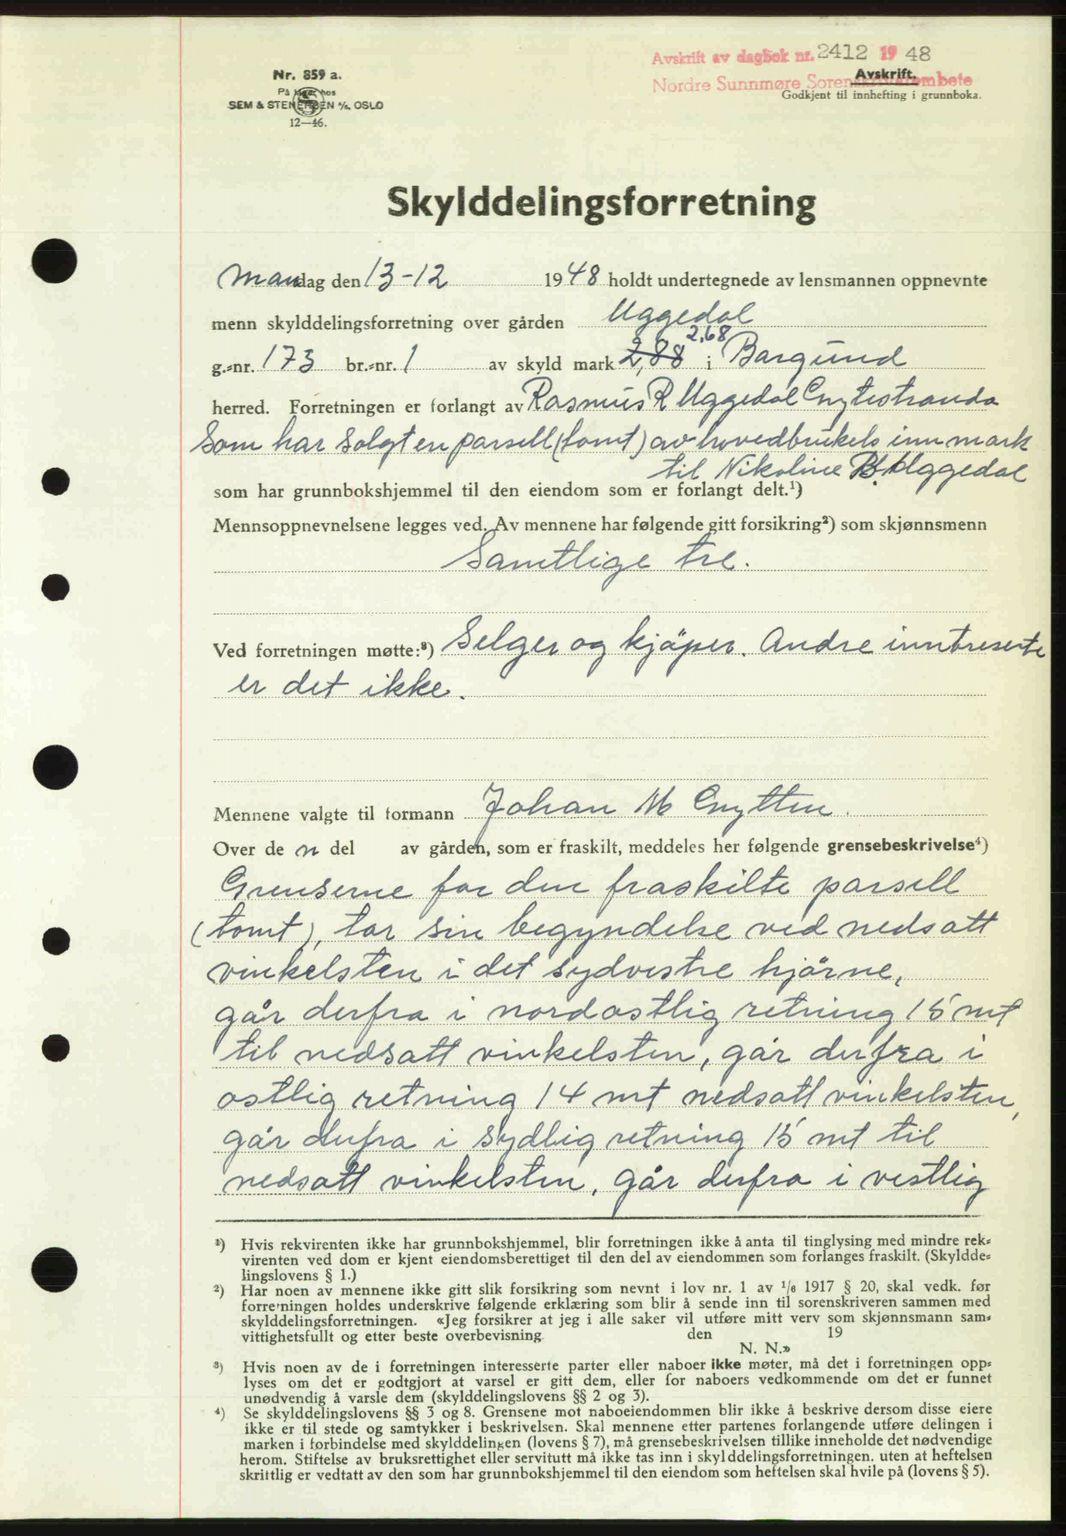 Avskrift av dagbok nr. 2412 1948
Nordre Sunnmøre Sorenskriverembete
Nr. 859 a.
På lager hos
SEM & STENERSEN A/S, OSLO
12—46.
Avskrift.
Godkjent til innhefting i grunnboka.
Skylddelingsforretning
Mandag den 13-12 1948 holdt undertegnede av lensmannen oppnevnte
menn skylddelingsforretning over gården Uggedal
g.-nr. 173 br.-nr. 1 av skyld mark 2,88 2,68 i Borgund
herred. Forretningen er forlangt av Rasmus R Uggedal Emblestranda
som har solgt en parsell (tomt) av hovedbrukets innmark
til Nikoline B. Uggedal
som har grunnbokshjemmel til den eiendom som er forlangt delt.¹)
Mennsoppnevnelsene legges ved. Av mennene har følgende gitt forsikring²) som skjønnsmenn
Samtlige tre.
Ved forretningen møtte:³) Selger og kjöper. Andre inntreserte
er det ikke.
Mennene valgte til formann Johan M
Over de n del av gården, som er fraskilt, meddeles her følgende grensebeskrivelse⁴)
Grenserne for den fraskilte parsell
(tomt), tar sin begyndelse ved nedsatt
vinkelsten i det sydvestre hjörne,
går derfra i nordostlig retning 15 mt
til nedsatt vinkelsten, går derfra i
ostlig retning 14 mt nedsatt vinkelsten,
går derfra i sydlig retning 15 mt til
nedsatt vinkelsten, går derfra i vestlig
¹) Hvis rekvirenten ikke har grunnbokshjemmel, blir forretningen ikke å anta til tinglysing med mindre rek-
virenten ved dom er kjent eiendomsberettiget til den del av eiendommen som forlanges fraskilt. (Skyldde-
lingslovens § 1.)
²) Har noen av mennene ikke gitt slik forsikring som nevnt i lov nr. 1 av 1/6 1917 § 20, skal vedk. før
forretningen holdes underskrive følgende erklæring som blir å sende inn til sorenskriveren sammen med
skylddelingsforretningen. «Jeg forsikrer at jeg i alle saker vil utføre mitt verv som skjønnsmann sam-
vittighetsfullt og etter beste overbevisning. den 19
N. N.»
³) Hvis noen av de i forretningen interesserte parter eller naboer ikke møter, må det i forretningen opp-
lyses om det er godtgjort at varsel er gitt dem, eller for naboers vedkommende om det er funnet
unødvendig å varsle dem (skylddelingslovens §§ 2 og 3).
⁴) Se skylddelingslovens §§ 3 og 8. Grensene mot naboeiendommen blir ikke å beskrive dersom disse eiere
ikke er til stede og samtykker i beskrivelsen. Skal mennene etter partenes forlangende utføre delingen i
marken i forbindelse med skylddelingen (lovens § 7), må grensebeskrivelsen tillike inneholde det nødvendige
herom. Stiftelse av bruksrettighet eller servitutt må ikke tas inn i skylddelingsforretningen. uten at heftelsen
skriftlig er vedtatt av den som har grunnbokshjemmel til den eiendom som heftelsen skal hvile på (lovens § 5).